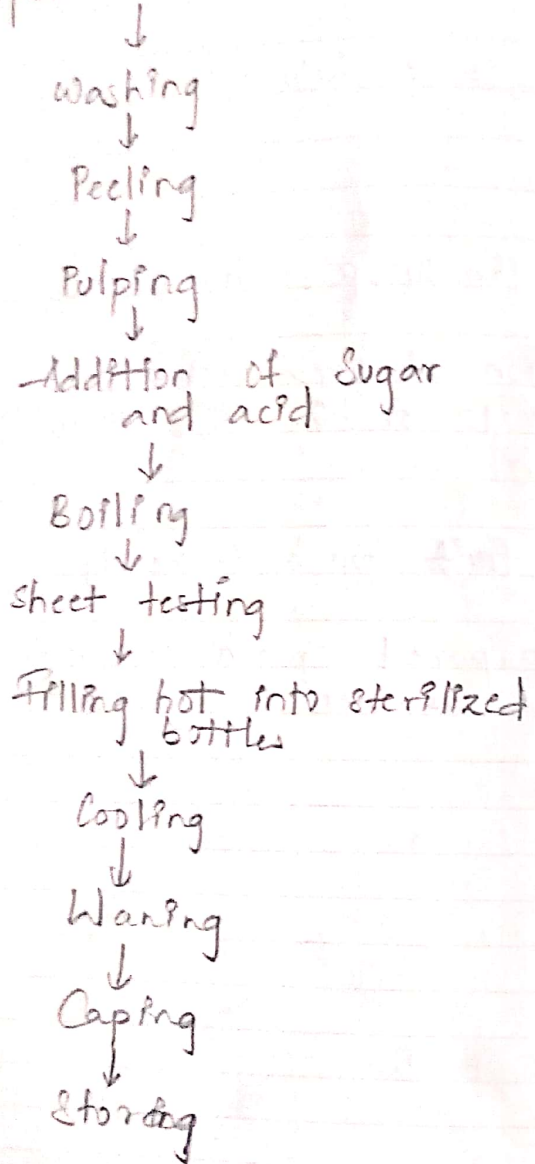 ↓
Washing
↓
Peeling
↓
Pulping
↓
Addition of Sugar
and acid
↓
Boiling
↓
Sheet testing
↓
Filling hot into sterilized
bottles
↓
Cooling
↓
Waning
↓
Caping
↓
Storing